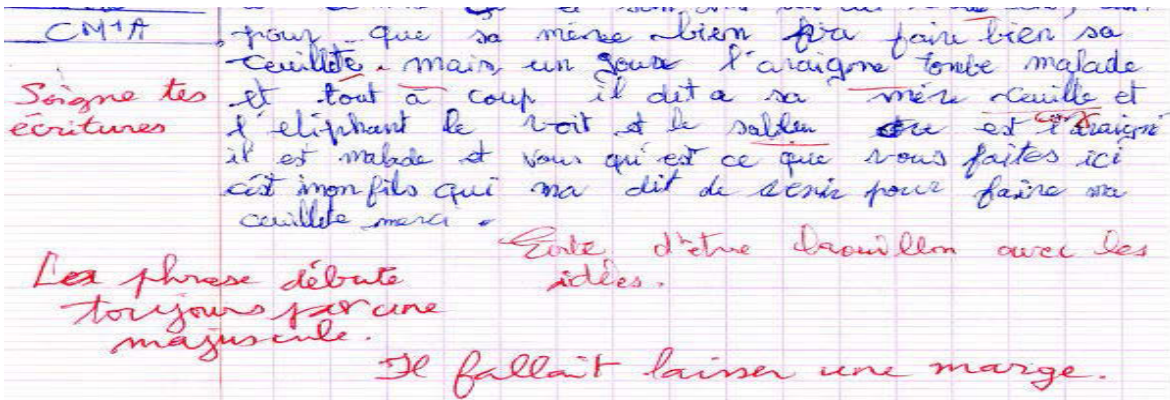 CM1A
pour que sa mère bien faire bien sa
ceuillete. mais, un jour l'araigne tombe malade
et tout a coup il dit a sa mère ceuille et
l'eliphant le voit et le est l'araigné
il est malade et vous qu'est ce que vous faites ici
cest mon fils qui ma dit de venir pour faire sa
ceuillete merci.
Soigne tes
écritures
Evite d'être brouillon avec les
idées.
La phrase débute
toujours par une
majuscule.
Il fallait laisser une marge.